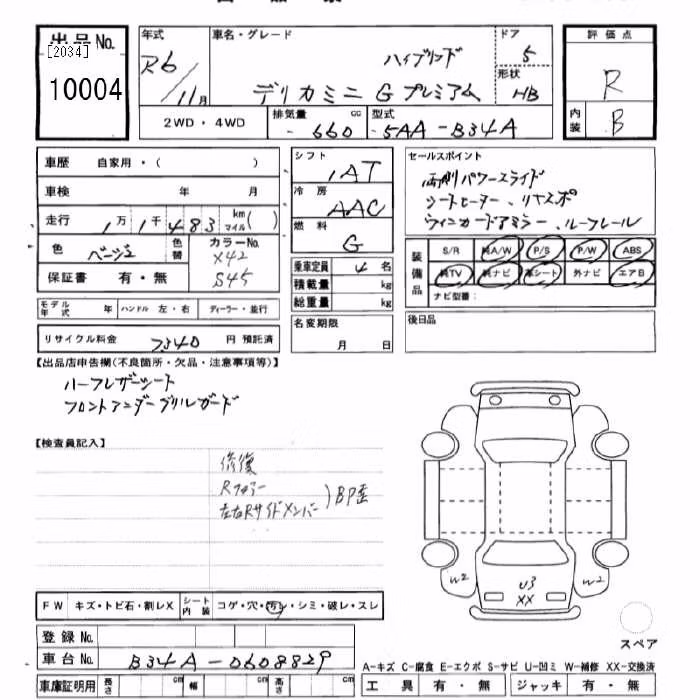 出品No.
[2034]
10004
年式
R6/11月
車名・グレード
ハイブリッド
デリカミニ Gプレミアム
ドア
5
形状
HB
評価点
R
内装
B
2WD・4WD
排気量 660 cc
型式 5AA-B34A
車歴 自家用・( )
車検 年 月
走行 1万1千483 km マイル( )
色 ベージュ2
色替
カラーNo.
X42
S45
保証書 有・無
モデル年式 年 ハンドル 左・右 ディーラー・並行
リサイクル料金 7340 円 預託済
シフト
1AT
冷房
AAC
燃料
G
乗車定員 4 名
積載量 kg
総重量 kg
名変期限
月 日
セールスポイント
両側パワースライド
シートヒーター、リヤスポ
ウィンカードアミラー、ルーフレール
装備品
S/R 純A/W P/S P/W ABS
純TV 純ナビ 革シート 外ナビ エアB
ナビ型番:
後日品
【出品店申告欄(不良箇所・欠品・注意事項等)】
ハーフレザーシート
フロントアンダーグリルガード
【検査員記入】
修復
Rフロアー
左右Rサイドメンバー ) BP歪
W2
U3
XX
W2
スペア
FW キズ・トビ石・割レX シート内装 コゲ・穴・汚レ・シミ・破レ・スレ
登録No.
車台No. B34A-0608829
車庫証明用 長さ cm 幅 cm 高さ cm
A-キズ C-腐食 E-エクボ S-サビ U-凹ミ W-補修 XX-交換済
工具 有・無 ジャッキ 有・無